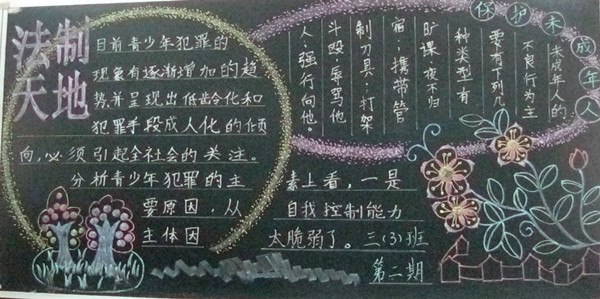 法制
天地
目前青少年犯罪的
现象有逐渐增加的趋
势,并呈现出低龄化和
犯罪手段成人化的倾
向,必须引起全社会的关注。
分析青少年犯罪的主
要原因,从
主体因
素上看,一是
自我控制能力
太脆弱了。三(3)班
第二期
保护未成年人
未成年人的
不良行为主
要有下列几
种类型:有
旷课、夜不归
宿;携带管
制刀具;打架
斗殴、辱骂他
人;强行向他。